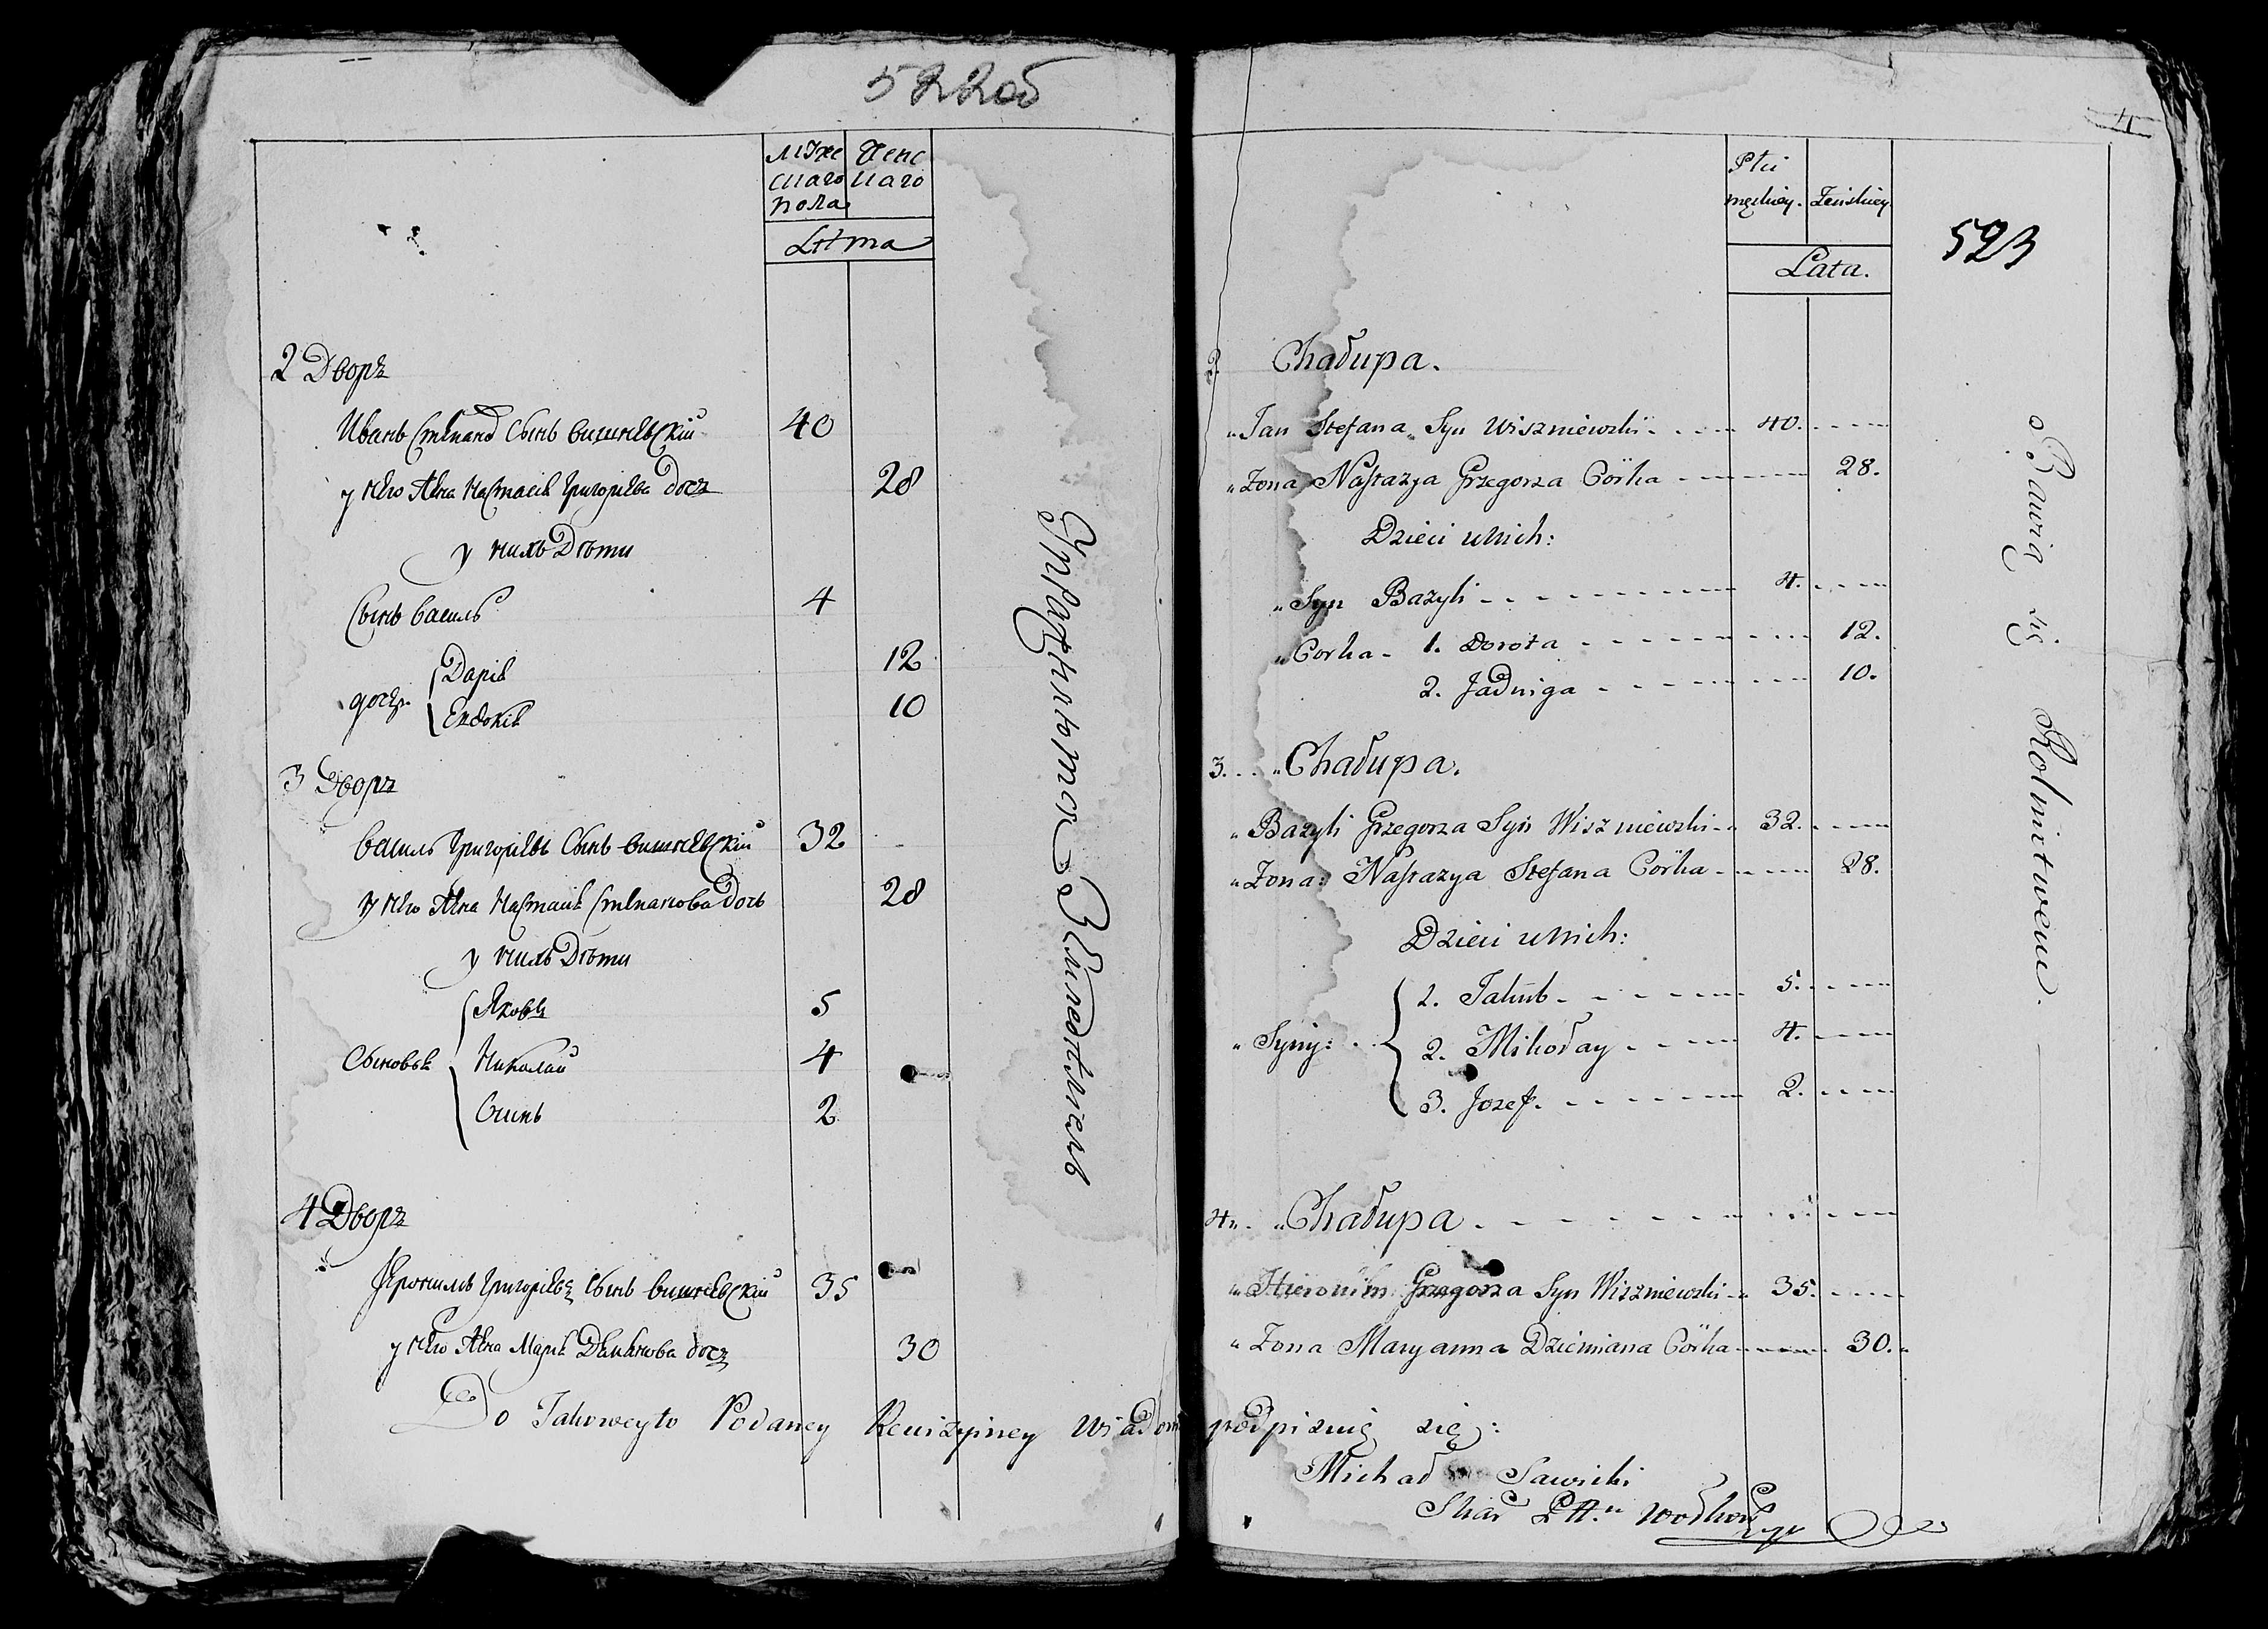 522об
мȢже женс
скаго каго
пола
Лѣта
2 Дворъ
Иванъ Степано Сынъ вишневскій 40
у него жена Настасія Григорієва дочъ 28
у нихъ Дѣти
Сынъ василь 4
дочѣри Дарія 12
Евдокія 10
3 Дворъ
василь Григоріевъ Сынъ вишневскій 32
у него жена Настасія Степанова дочь 28
у нихъ Дѣти
Сыновья Яковъ 5
Николай 4
Осипъ 2
4 Дворъ
Ярохимъ Григоріевъ Сынъ вишневскій 35
у него жена Марія Деміянова дочъ 30
Упражняются Земледѣлиемъ
4
523
Płci
męskiey. Żeńskiey
Lata.
2. Chałupa.
„Jan Stefana Syn Wiszniewski 40.
„Zona Nastazya Grzegorza Córka 28.
Dzieci u Nich:
„Syn Bazyli 4.
„Corka 1. Dorota 12.
2. Jadwiga 10.
3. „Chałupa.
„Bazyli Grzegorza Syn Wiszniewski 32.
„Zona: Nastazya Stefana Córka 28.
Dzieci u Nich:
1. Jakub 5.
„Syny: 2. Mikołay 4.
3. Jozef. 2.
4. „Chałupa
„Hieronim Grzegorza Syn Wiszniewski 35.
„Zona Maryanna Dziemiana Córka 30.
Bawią się Rolnictwem.
Do Takoweyto Podaney Rewizyiney Wiadom podpisuię się:
Michał Sawicki